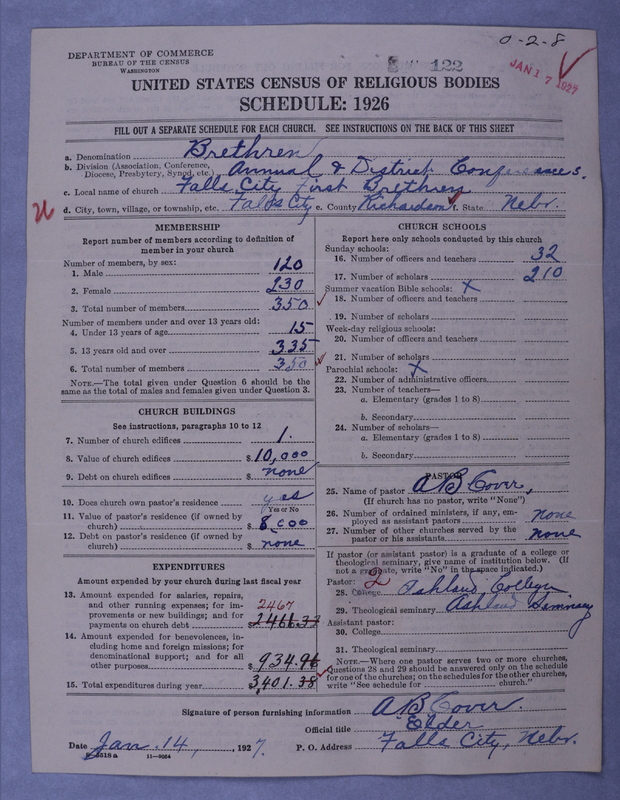 0-2-8
DEPARTMENT OF COMMERCE
BUREAU OF THE CENSUS
WASHINGTON
122
JAN 17 1927
UNITED STATES CENSUS OF RELIGIOUS BODIES
SCHEDULE: 1926
FILL OUT A SEPARATE SCHEDULE FOR EACH CHURCH. SEE INSTRUCTIONS ON THE BACK OF THIS SHEET
a. Denomination Brethren
b. Division (Association, Conference, Diocese, Presbytery, Synod, etc.) Annual & District Conferences.
c. Local name of church Falls City First Brethren
d. City, town, village, or township, etc. Falls City e. County Richardson f. State Nebr.
MEMBERSHIP
Report number of members according to definition of
member in your church
Number of members, by sex:
1. Male 120
2. Female 230
3. Total number of members 350
Number of members under and over 13 years old:
4. Under 13 years of age 15
5. 13 years old and over 335
6. Total number of members 350
NOTE.—The total given under Question 6 should be
the same as the total of males and females given under Question 3.
CHURCH BUILDINGS
See instructions, paragraphs 10 to 12
7. Number of church edifices 1.
8. Value of church edifices $ 10,000
9. Debt on church edifices $ none
10. Does church own pastor's residence yes
Yes or No
11. Value of pastor's residence (if owned by
church) $ 8,000
12. Debt on pastor's residence (if owned by
church) $ none
EXPENDITURES
Amount expended by your church during last fiscal year
13. Amount expended for salaries, repairs,
and other running expenses; for im-
provements or new buildings; and for
payments on church debt 2467
$ 2466.37
14. Amount expended for benevolences, in-
cluding home and foreign missions; for
denominational support; and for all
other purposes $ 934.96
15. Total expenditures during year $ 3,401.38
CHURCH SCHOOLS
Report here only schools conducted by this church
Sunday schools:
16. Number of officers and teachers 32
17. Number of scholars 210
Summer vacation Bible schools: X
18. Number of officers and teachers
19. Number of scholars
Week-day religious schools:
20. Number of officers and teachers
21. Number of scholars
Parochial schools: X
22. Number of administrative officers
23. Number of teachers—
a. Elementary (grades 1 to 8)
b. Secondary
24. Number of scholars—
a. Elementary (grades 1 to 8)
b. Secondary
PASTOR
25. Name of pastor A B Cover,
(If church has no pastor, write "None")
26. Number of ordained ministers, if any, em-
ployed as assistant pastors none
27. Number of other churches served by the
pastor or his assistants none
If pastor (or assistant pastor) is a graduate of a college or
theological seminary, give name of institution below. (If
not a graduate, write "No" in the space indicated.)
Pastor: 2
28. College Ashland College
29. Theological seminary Ashland Seminary
Assistant pastor:
30. College
31. Theological seminary
NOTE.—Where one pastor serves two or more churches,
Questions 28 and 29 should be answered only on the schedule
for one of the churches; on the schedules for the other churches,
write "See schedule for church."
Signature of person furnishing information A B Cover.
Official title Elder
Date Jan. 14, , 1927. P. O. Address Falls City, Nebr.